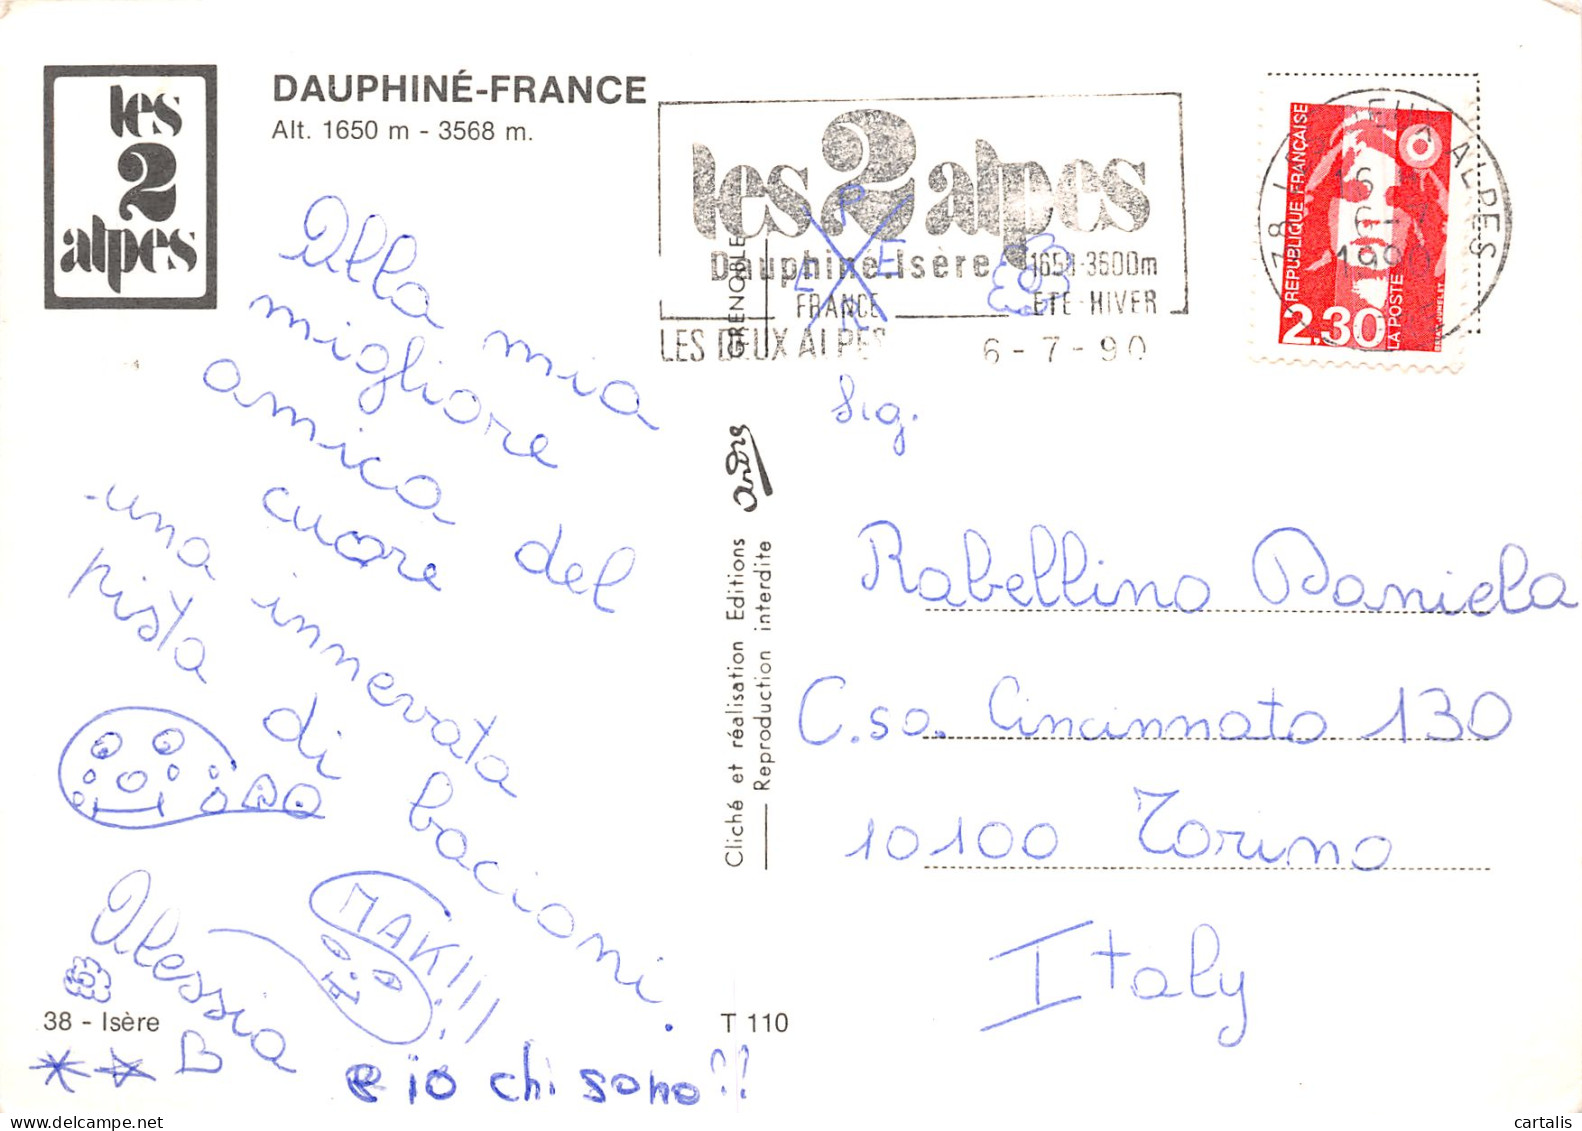 les
2
alpes
DAUPHINÉ-FRANCE
Alt. 1650 m - 3568 m.
les 2 alpes
Dauphiné.Isère
1650-3600m
FRANCE
ETE-HIVER
LES DEUX ALPES
6-7-90
GRENOBLE
P
E
E
R
38 LES DEUX ALPES
16 H
6-7
1990
REPUBLIQUE FRANÇAISE
2.30
LA POSTE
Alla mia
migliore
amica del
cuore
una innevata
pista di bacioni.
Alessia
MAK!!!
e io chi sono??
38 - Isère
T 110
Cliché et réalisation Editions andre
Reproduction interdite
Sig.
Rabellino Daniela
C.so. Cincinnato 130
10100 Torino
Italy
cartalis